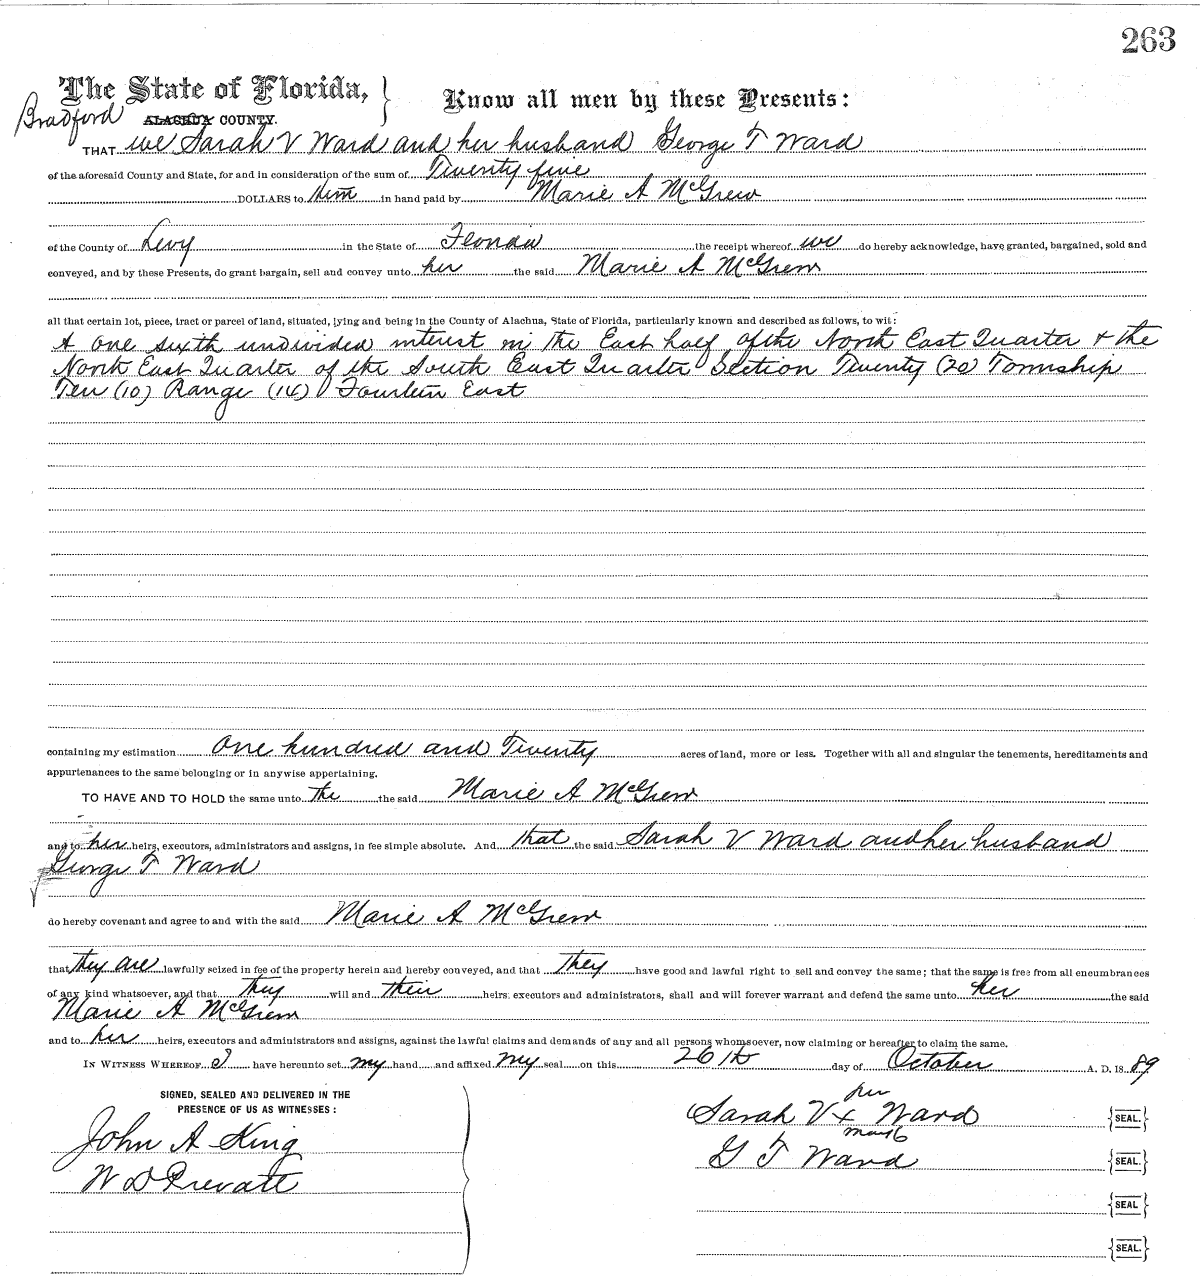 263
The State of Florida,
Know all men by these Presents:
Bradford
ALACHUA COUNTY.
THAT we Sarah V Ward and her husband George T Ward
of the aforesaid County and State, for and in consideration of the sum of Twenty five
DOLLARS to them in hand paid by Marie A McGrew
of the County of Levy in the State of Florida the receipt whereof we do hereby acknowledge, have granted, bargained, sold and
conveyed, and by these Presents, do grant bargain, sell and convey unto her the said Marie A McGrew
all that certain lot, piece, tract or parcel of land, situated, lying and being in the County of Alachua, State of Florida, particularly known and described as follows, to wit:
A one sixth undivided interest in the East half of the North East Quarter & the
North East Quarter of the South East Quarter Section Twenty (20) Township
Ten (10) Range (14) Fourteen East
containing my estimation One hundred and Twenty acres of land, more or less. Together with all and singular the tenements, hereditaments and
appurtenances to the same belonging or in anywise appertaining.
TO HAVE AND TO HOLD the same unto the the said Marie A McGrew
and to her heirs, executors, administrators and assigns, in fee simple absolute. And that the said Sarah V Ward and her husband
George T Ward
do hereby covenant and agree to and with the said Marie A McGrew
that they are lawfully seized in fee of the property herein and hereby conveyed, and that they have good and lawful right to sell and convey the same; that the same is free from all encumbrances
of any kind whatsoever, and that they will and their heirs executors and administrators, shall and will forever warrant and defend the same unto her the said
Marie A McGrew
and to her heirs, executors and administrators and assigns, against the lawful claims and demands of any and all persons whomsoever, now claiming or hereafter to claim the same.
IN WITNESS WHEREOF I have hereunto set my hand and affixed my seal on this 26th day of October A. D. 18 89
SIGNED, SEALED AND DELIVERED IN THE
PRESENCE OF US AS WITNESSES:
her
Sarah V x Ward {SEAL.}
mark
John A King
G T Ward {SEAL.}
W D Prevatt
{SEAL.}
{SEAL.}